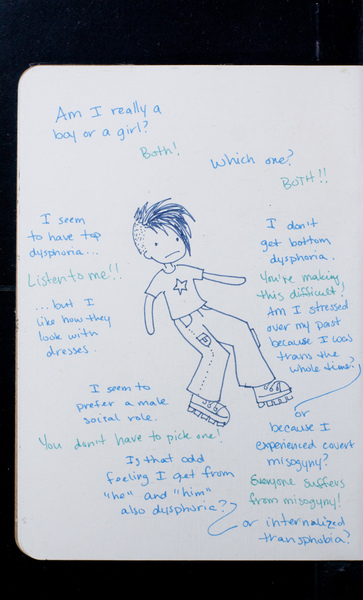 Am I really a
boy or a girl?
Both!
Which one?
BOTH!!
I seem
to have top
dysphoria...
Listen to me!!
...but I
like how they
look with
dresses.
I don't
get bottom
dysphoria.
You're making
this difficult,
Am I stressed
over my past
because I was
trans the
whole time?
or
because I
experienced covert
misogyny?
Everyone suffers
from misogyny!
or internalized
transphobia?
I seem to
prefer a male
soital role.
You don't have to pick one!
Is that odd
feeling I get from
"he" and "him"
also dysphoria?